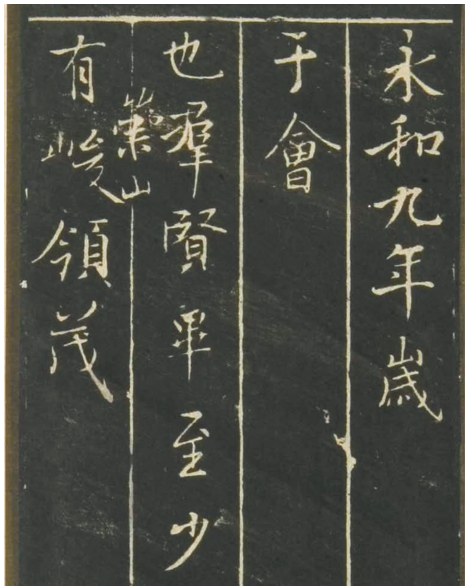 永和九年歲
于會
也羣賢畢至少
有崇山峻領茂